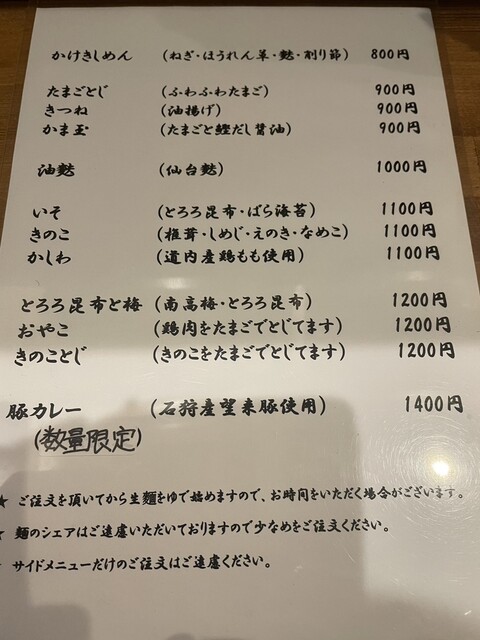 かけきしめん (ねぎ・ほうれん草・麩・削り節) 800円
たまごとじ (ふわふわたまご) 900円
きつね (油揚げ) 900円
かま玉 (たまごと鰹だし醤油) 900円
油麩 (仙台麩) 1000円
いそ (とろろ昆布・ばら海苔) 1100円
きのこ (椎茸・しめじ・えのき・なめこ) 1100円
かしわ (道内産鶏もも使用) 1100円
とろろ昆布と梅 (南高梅・とろろ昆布) 1200円
おやこ (鶏肉をたまごでとじてます) 1200円
きのことじ (きのこをたまごでとじてます) 1200円
豚カレー (石狩産望来豚使用) 1400円
(数量限定)
★ ご注文を頂いてから生麺をゆで始めますので、お時間をいただく場合がございます。
★ 麺のシェアはご遠慮いただいておりますので少なめをご注文ください。
★ サイドメニューだけのご注文はご遠慮ください。